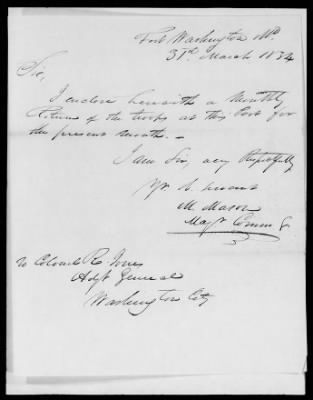 Fort Washington Md.
31st March 1834
Sir,
I enclose herewith a Monthly
Return of the troops at this Post for
the present month. -
I am Sir, very Respectfully
Yr. O. Servant
M. Mason
Majr Comm
To Colonel R. Jones
Adjt General
Washington City